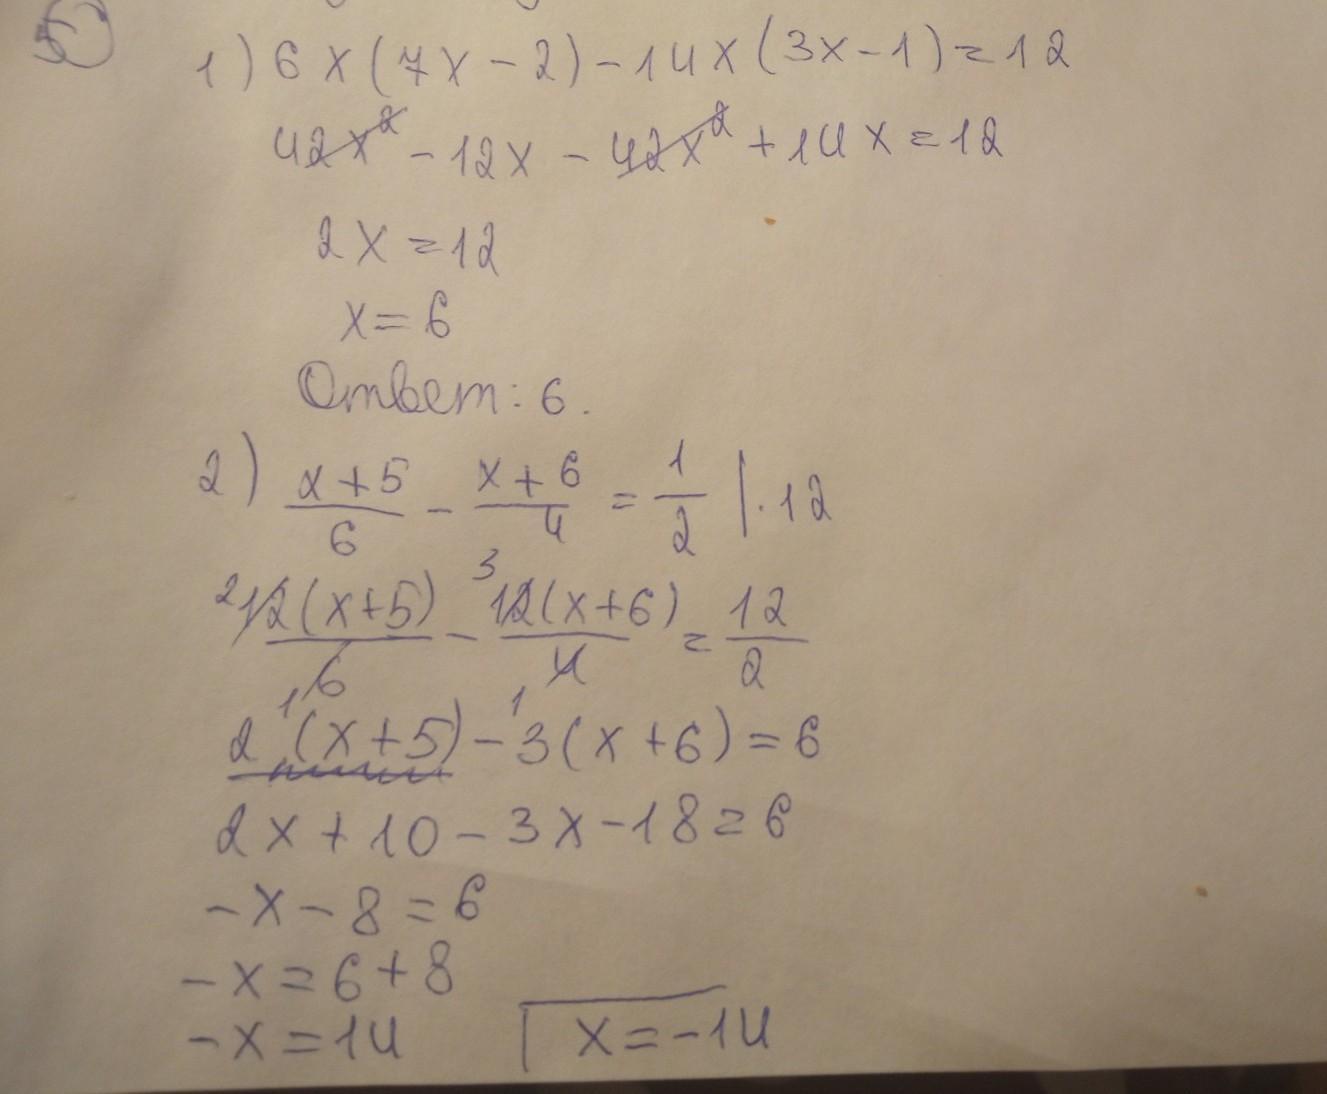 5
1) 6x(7x-2)-14x(3x-1)=12
42x²-12x-42x²+14x=12
2x=12
x=6
Ответ: 6.
2) x+5/6 - x+6/4 = 1/2 |·12
² 12(x+5)/6 - ³ 12(x+6)/4 = 12/2
1 1
2(x+5)-3(x+6)=6
2x+10-3x-18=6
-x-8=6
-x=6+8
-x=14 x=-14